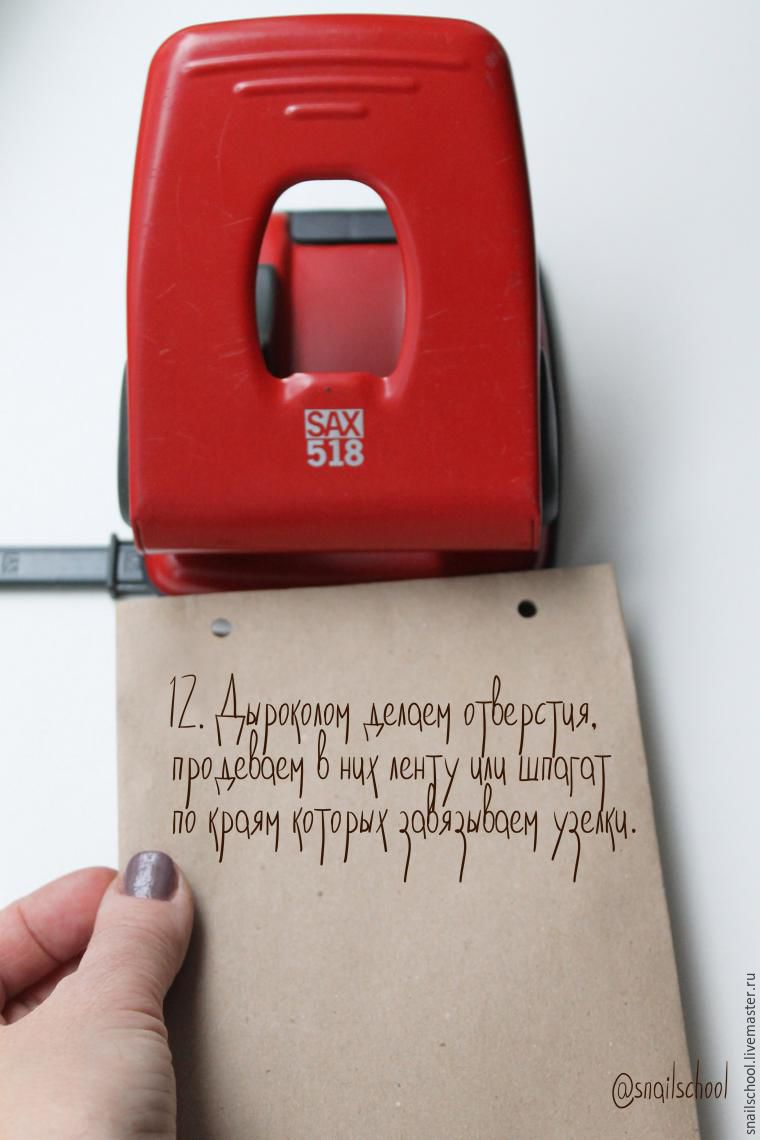 SAX
518
12. Дыроколом делаем отверстия,
продеваем в них ленту или шпагат
по краям которых завязываем узелки.
@snailschool
snailschool.livemaster.ru